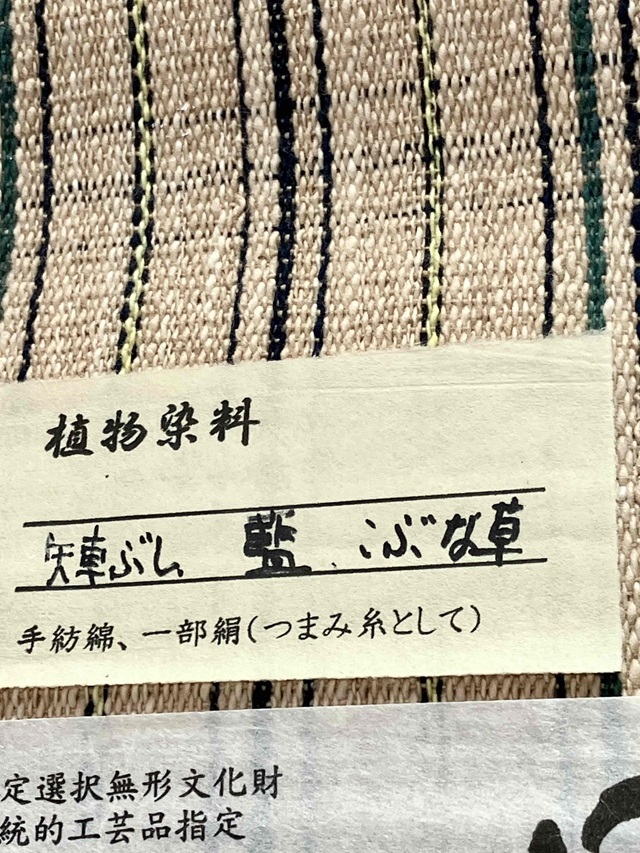 植物染料
矢車ぶし 藍 こぶな草
手紡綿、一部絹(つまみ糸として)
定選択無形文化財
統的工芸品指定